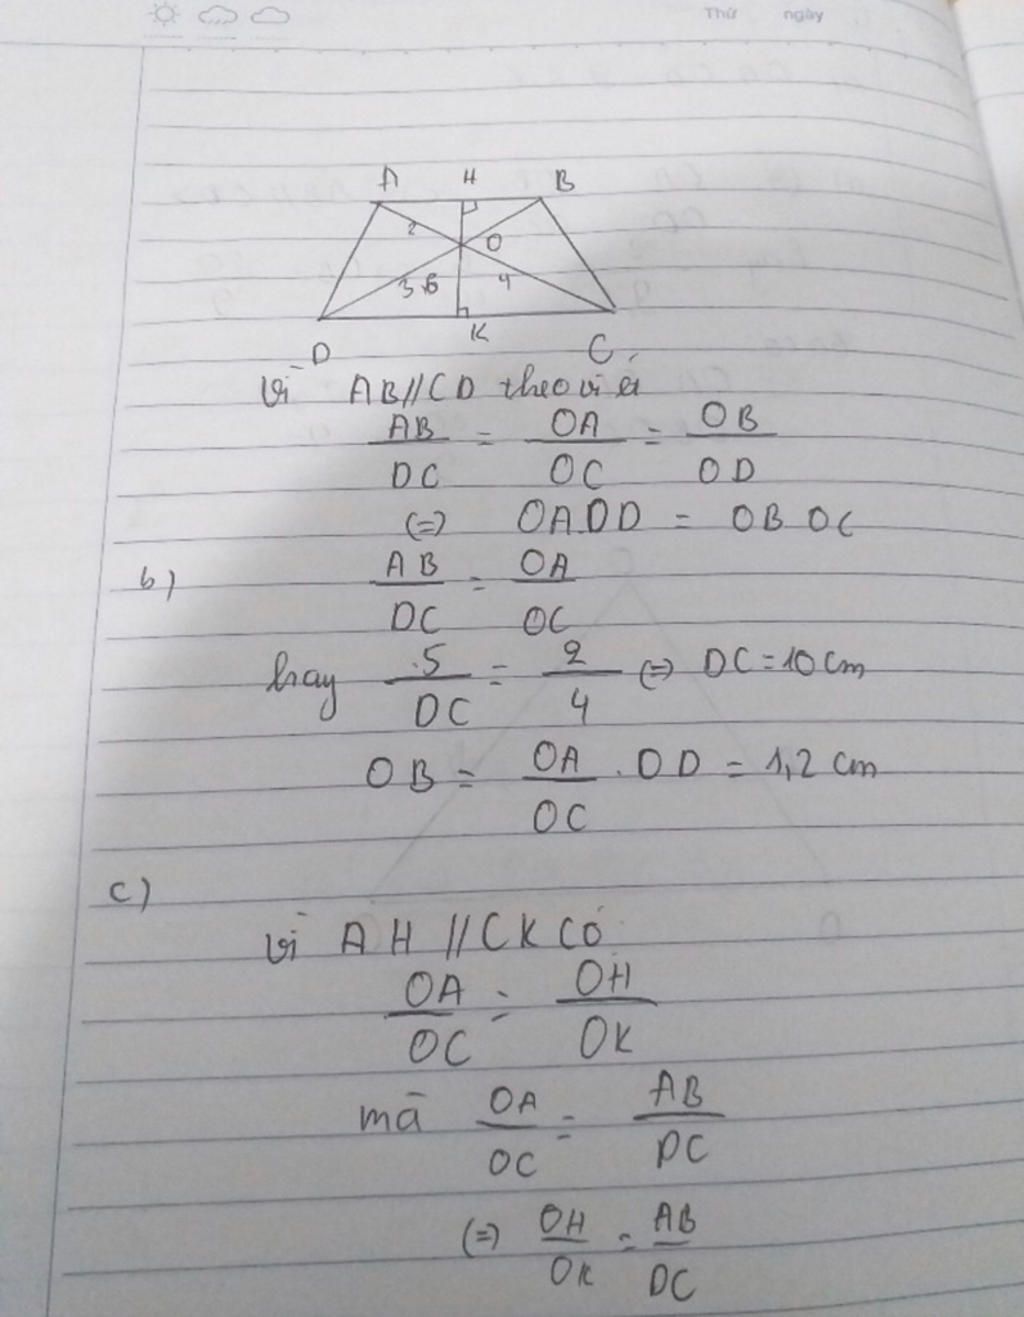 Thứ ngày
A H B
2 O
3,6 4
D K C
Vì AB//CD theo viét
AB/DC = OA/OC = OB/OD
(=) OA.OD = OB OC
b) AB/DC = OA/OC
hay 5/DC = 2/4 (=) DC = 10 cm
OB = OA/OC . OD = 1,2 cm
c)
Vì AH // CK có
OA/OC = OH/OK
mà OA/OC = AB/DC
(=) OH/OK = AB/DC